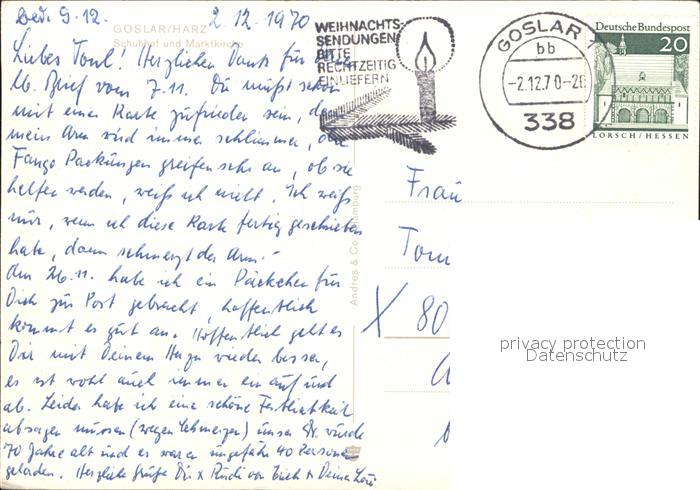 Bed. 9.12.
2.12.1970
GOSLAR/HARZ
Schuhhof und Marktkirche
WEIHNACHTS-
SENDUNGEN
BITTE
RECHTZEITIG
EINLIEFERN
GOSLAR
bb
-2.12.70-20
338
Deutsche Bundespost
20
LORSCH/HESSEN
Liebes Toni! Herzlichen Dank für
lb. Brief vom 7.11. Du mußt schon
mit einer Karte zufrieden sein, da
mein Arm wird immer schlimmer, die
Fango Packungen greifen sehr an, ob sie
helfen werden, weiß ich nicht. Ich weiß
nur, wenn ich diese Karte fertig geschrieben
habe, dann schmerzt der Arm.
Am 26.11. habe ich ein Päckchen für
Dich zur Post gebracht, hoffentlich
kommt es gut an. Hoffentlich geht es
Dir mit Deinem Herzen wieder besser,
es ist wohl auch immer ein auf und
ab. Leider habe ich eine schöne Festlichkeit
absagen müssen (wegen Schmerzen) unser Dr. wurde
70 Jahre alt und es waren ungefähr 40 Personen
geladen. Herzliche Grüße Dir x Rudi von Erich x Deine
Andres & Co. Hamburg
Frau
X 80
privacy protection
Datenschutz